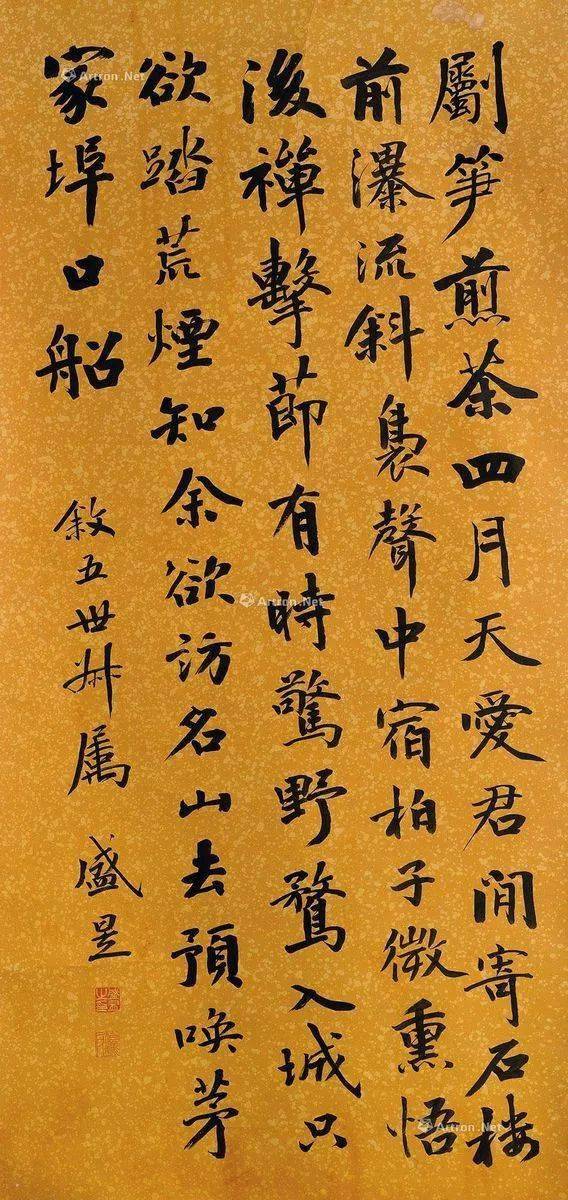 劚笋煎茶四月天愛君閒寄石楼
前瀑流斜裊聲中宿柏子微熏悟
後禪擊節有時驚野鶩入城只
欲踏荒煙知余欲訪名山去預喚茅
家埠口船
敘五世叔属 盛昱
Artron.Net
Artron.Net
Artron.Net